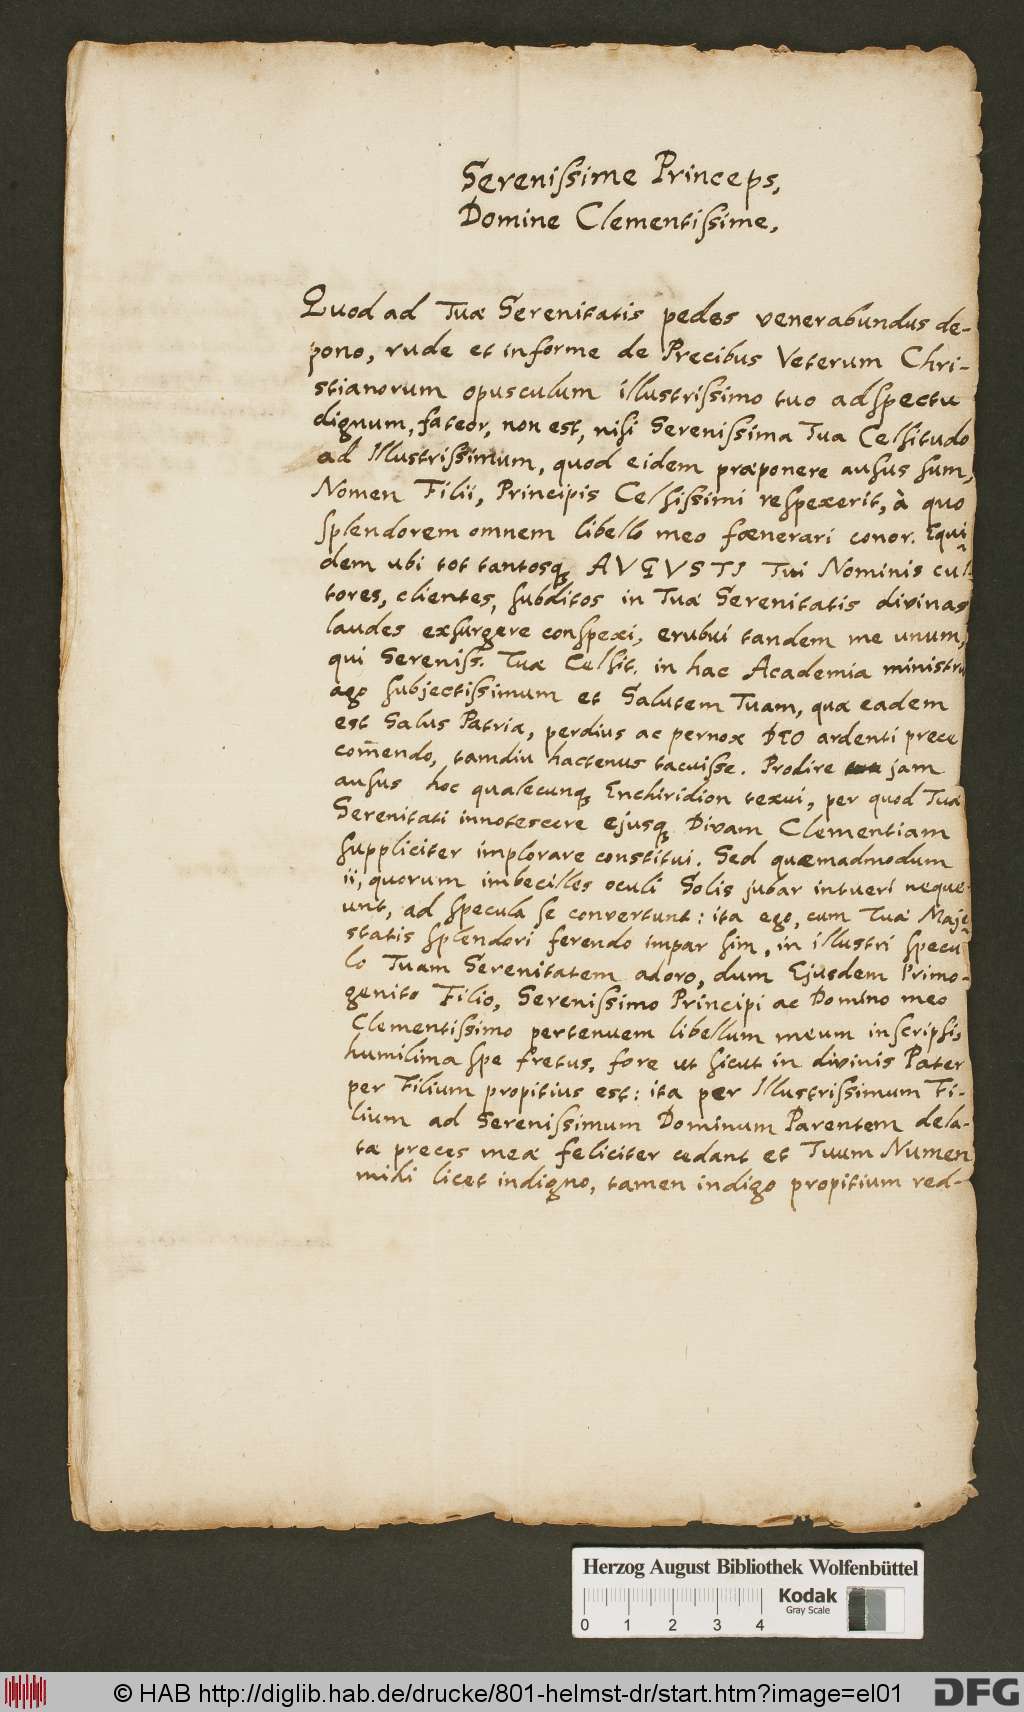 Sereniſsime Princeps,
Domine Clementiſsime,
Quod ad Tuæ Serenitatis pedes venerabundus de-
pono, rude et informe de Precibus Veterum Chri-
stianorum opusculum illustriſsimo tuo adſpectu
dignum, fateor, non est, niſi Sereniſsima Tua Celſitudo
ad Illustriſsimum, quod eidem præponere auſus ſum,
Nomen Filii, Principis Celſiſsimi reſpexerit, à quo
ſplendorem omnem libello meo fœnerari conor. Equi
dem ubi tot tantosq; AVGVSTI Tui Nominis cul-
tores, clientes, ſubditos in Tuæ Serenitatis divinas
laudes exſurgere conſpexi, erubui tandem me unum,
qui Sereniſs. Tuæ Celſit. in hac Academia ministrũ
ago ſubjectiſsimum et Salutem Tuam, quæ eadem
est Salus Patriæ, perdius ac pernox DEO ardenti prece
com̄endo, tamdiu hactenus tacuiſse. Prodire jam
auſus hoc qualecunq; Enchiridion texui, per quod Tuæ
Serenitati innotescere ejusq; Divam Clementiam
ſuppliciter implorare constitui. Sed quæmadmodum
ii, quorum imbecilles oculi Solis jubar intueri neque-
unt, ad ſpecula ſe convertunt: ita ego, cum Tuæ Maje-
statis ſplendori ferendo impar ſim, in illustri ſpecu-
lo Tuam Serenitatem adoro, dum Ejusdem Primo-
genito Filio, Sereniſsimo Principi ac Domino meo
Clementiſsimo pertenuem libellum meum inſcripſi,
humilima ſpe fretus, fore ut ſicut in divinis Pater
per Filium propitius est: ita per Illustriſsimum Fi-
lium ad Sereniſsimum Dominum Parentem dela-
tæ preces meæ feliciter cedant et Tuum Numen
mihi licet indigno, tamen indigo propitium red-
Herzog August Bibliothek Wolfenbüttel
0 1 2 3 4
Kodak
Gray Scale
© HAB http://diglib.hab.de/drucke/801-helmst-dr/start.htm?image=el01
DFG